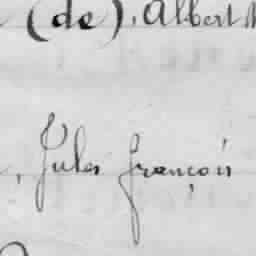 (de), Albert
, Jules François